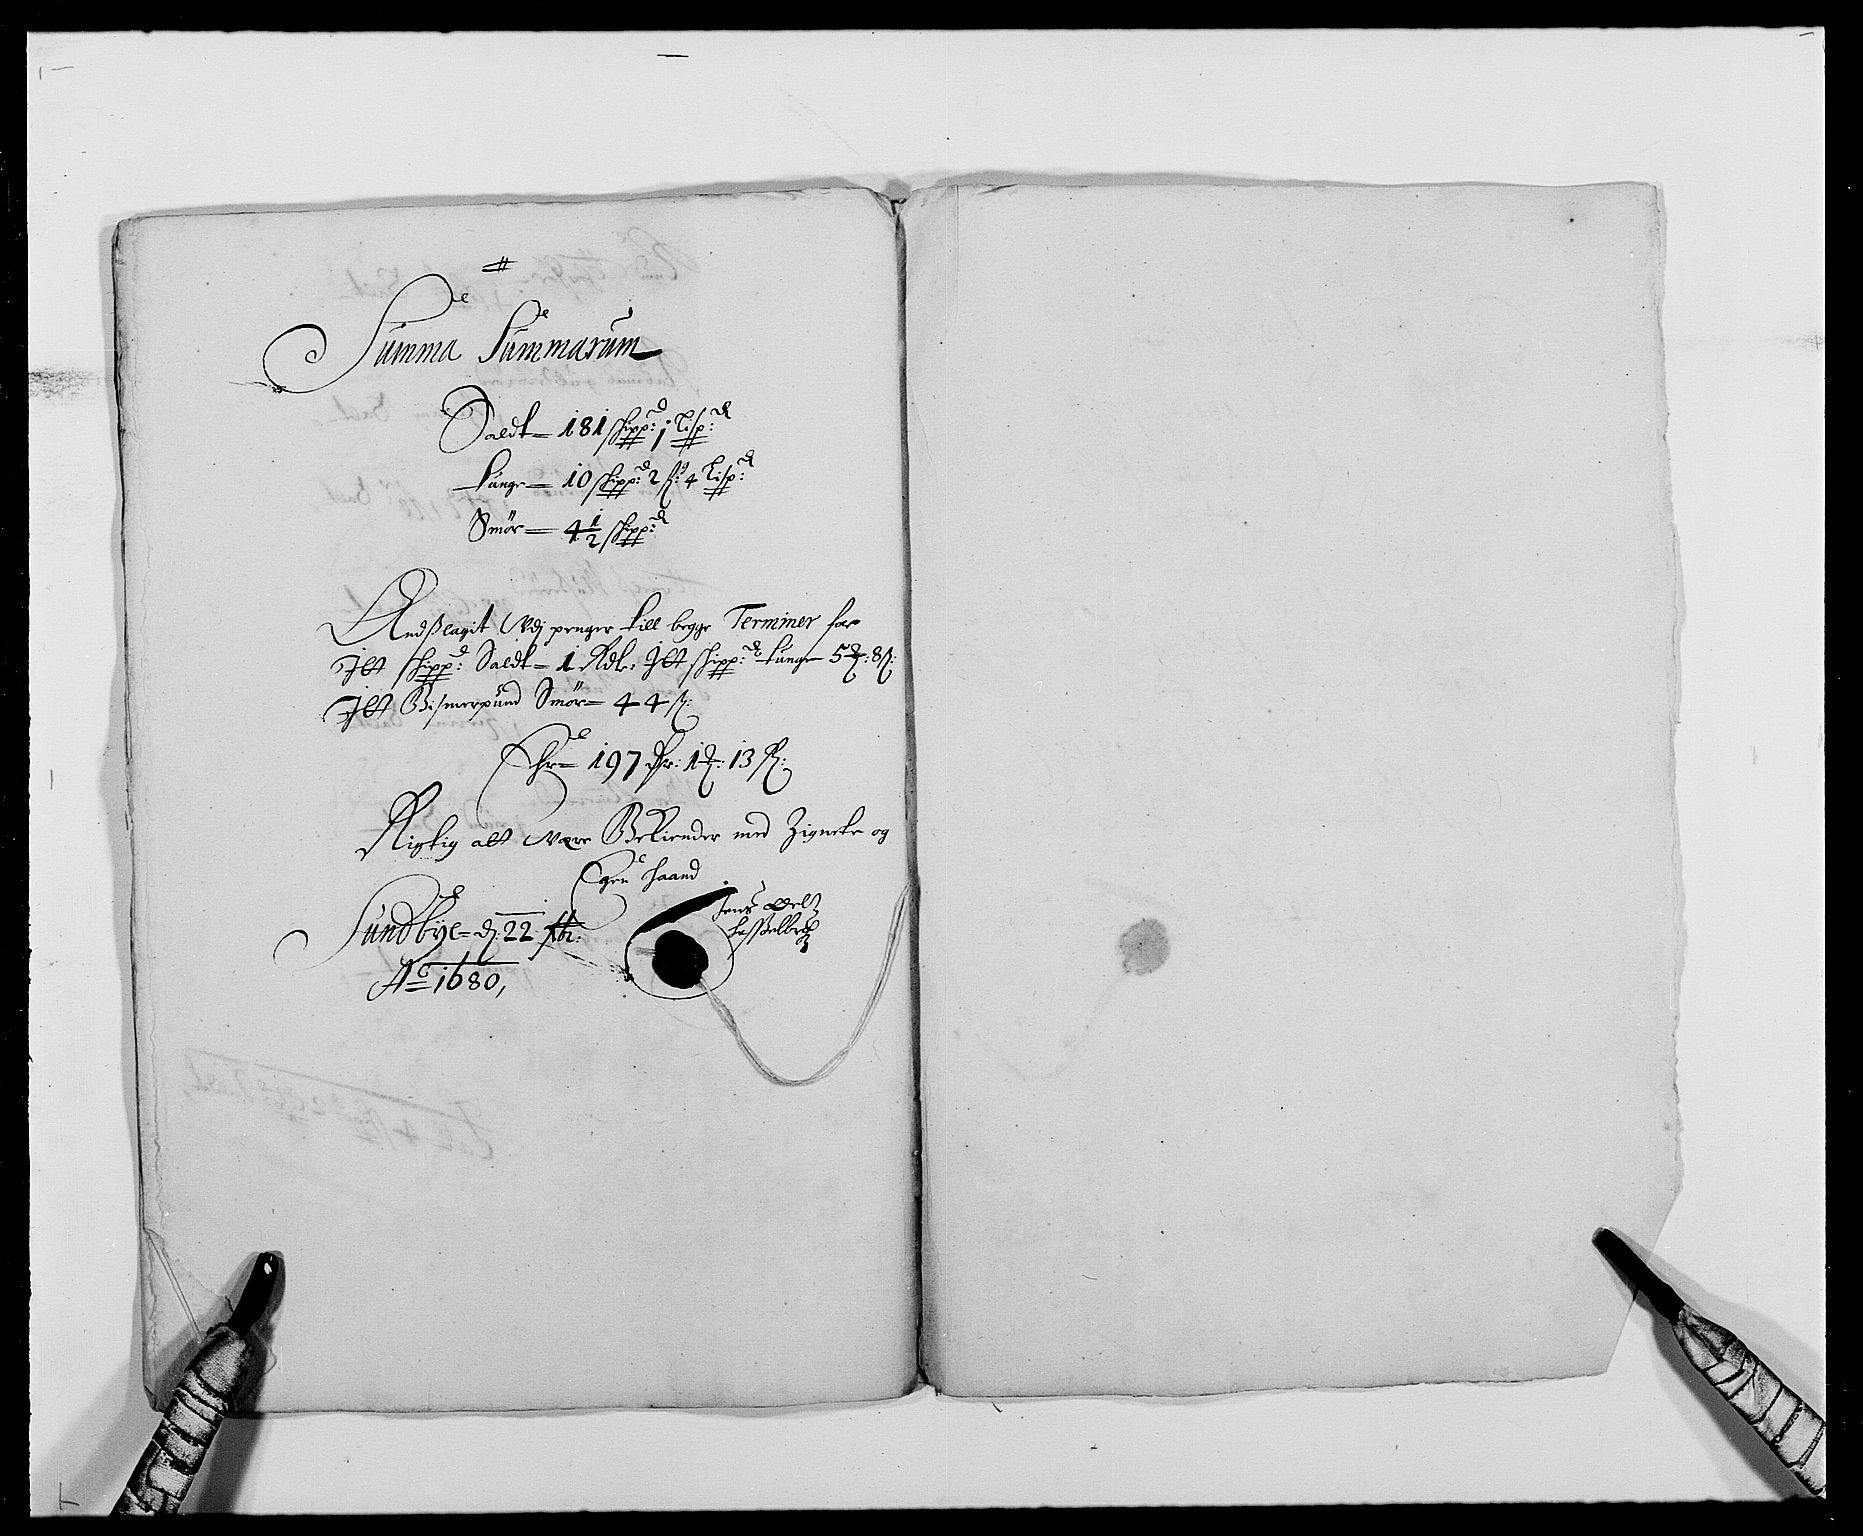 Summa Summarum
Saldt 181 skipp: 1 Lisp:
Tunge 10 skipp: 2 ß: 4 Lisp:
Smör 4 1/2 skipp:
Andßlagit Vdj penger till begge Terminer for
Itt skipp: Saldt 1 Rdr: Itt skipp: tunge 5 : 8 ß:
Itt Bismerpund Smör 44 ß:
Ehr 197 Dr: 1 : 13 ß:
Rigtig alt være Bekiender med Zignete og
Egen haand
Jens
Sundbye d: 22
Ao 1680,